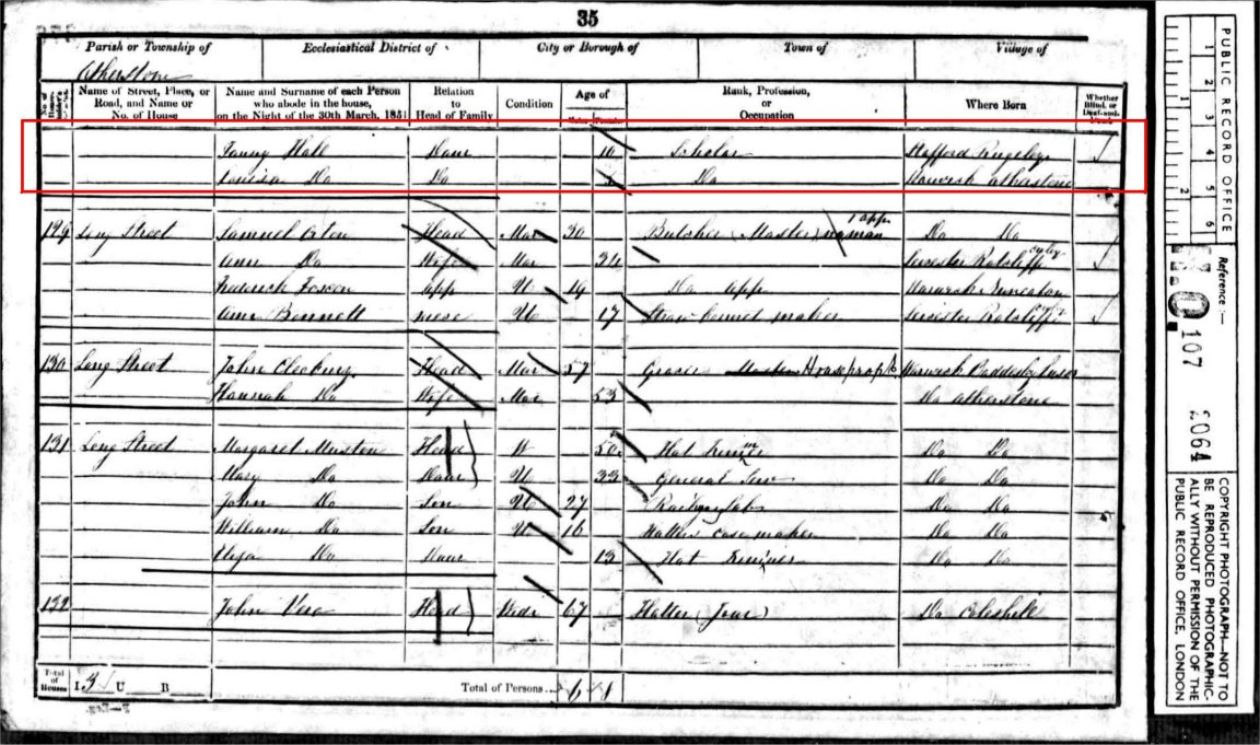 35
Parish or Township of Ecclesiastical District of City or Borough of Town of Village of
Atherstone
Name of Street, Place, or Road, and Name or No. of House
Name and Surname of each Person who abode in the house, on the Night of the 30th March, 1851
Relation to Head of Family
Condition
Age of
Rank, Profession, or Occupation
Where Born
Whether Blind, or Deaf-and-
Fanny Hall Daur 10 Scholar Stafford
Louisa Do Do Do Warwick Atherstone
129 Long Street Samuel Orton Head Mar 30 Butcher (Master) 1 app Do Do
Ann Do Wife Mar Leicester Ratcliffe
Frederick app U 14 Do app Warwick Nuneaton
Ann Bennett U 17 Straw bonnet maker Leicester Ratcliffe
130 Long Street John Head Mar 57 House prop Warwick
Hannah Do Wife Mar 53 Do Atherstone
131 Long Street Margaret Muston Head W 50 Hat Do Do
Mary Do Daur U 22 General Do Do
John Do Son U 27 Do Do
William Do Son U 16 case maker Do Do
Eliza Do Daur 13 Hat Do Do
132 John Vero Head 67 Hatter (Jour) Do Coleshill
Total of Houses I 3 U B Total of Persons 6
PUBLIC RECORD OFFICE
1 2 3 4 5 6
1 2
Reference :—
H.O. 107
2064
COPYRIGHT PHOTOGRAPH—NOT TO
BE REPRODUCED PHOTOGRAPHIC-
ALLY WITHOUT PERMISSION OF THE
PUBLIC RECORD OFFICE, LONDON